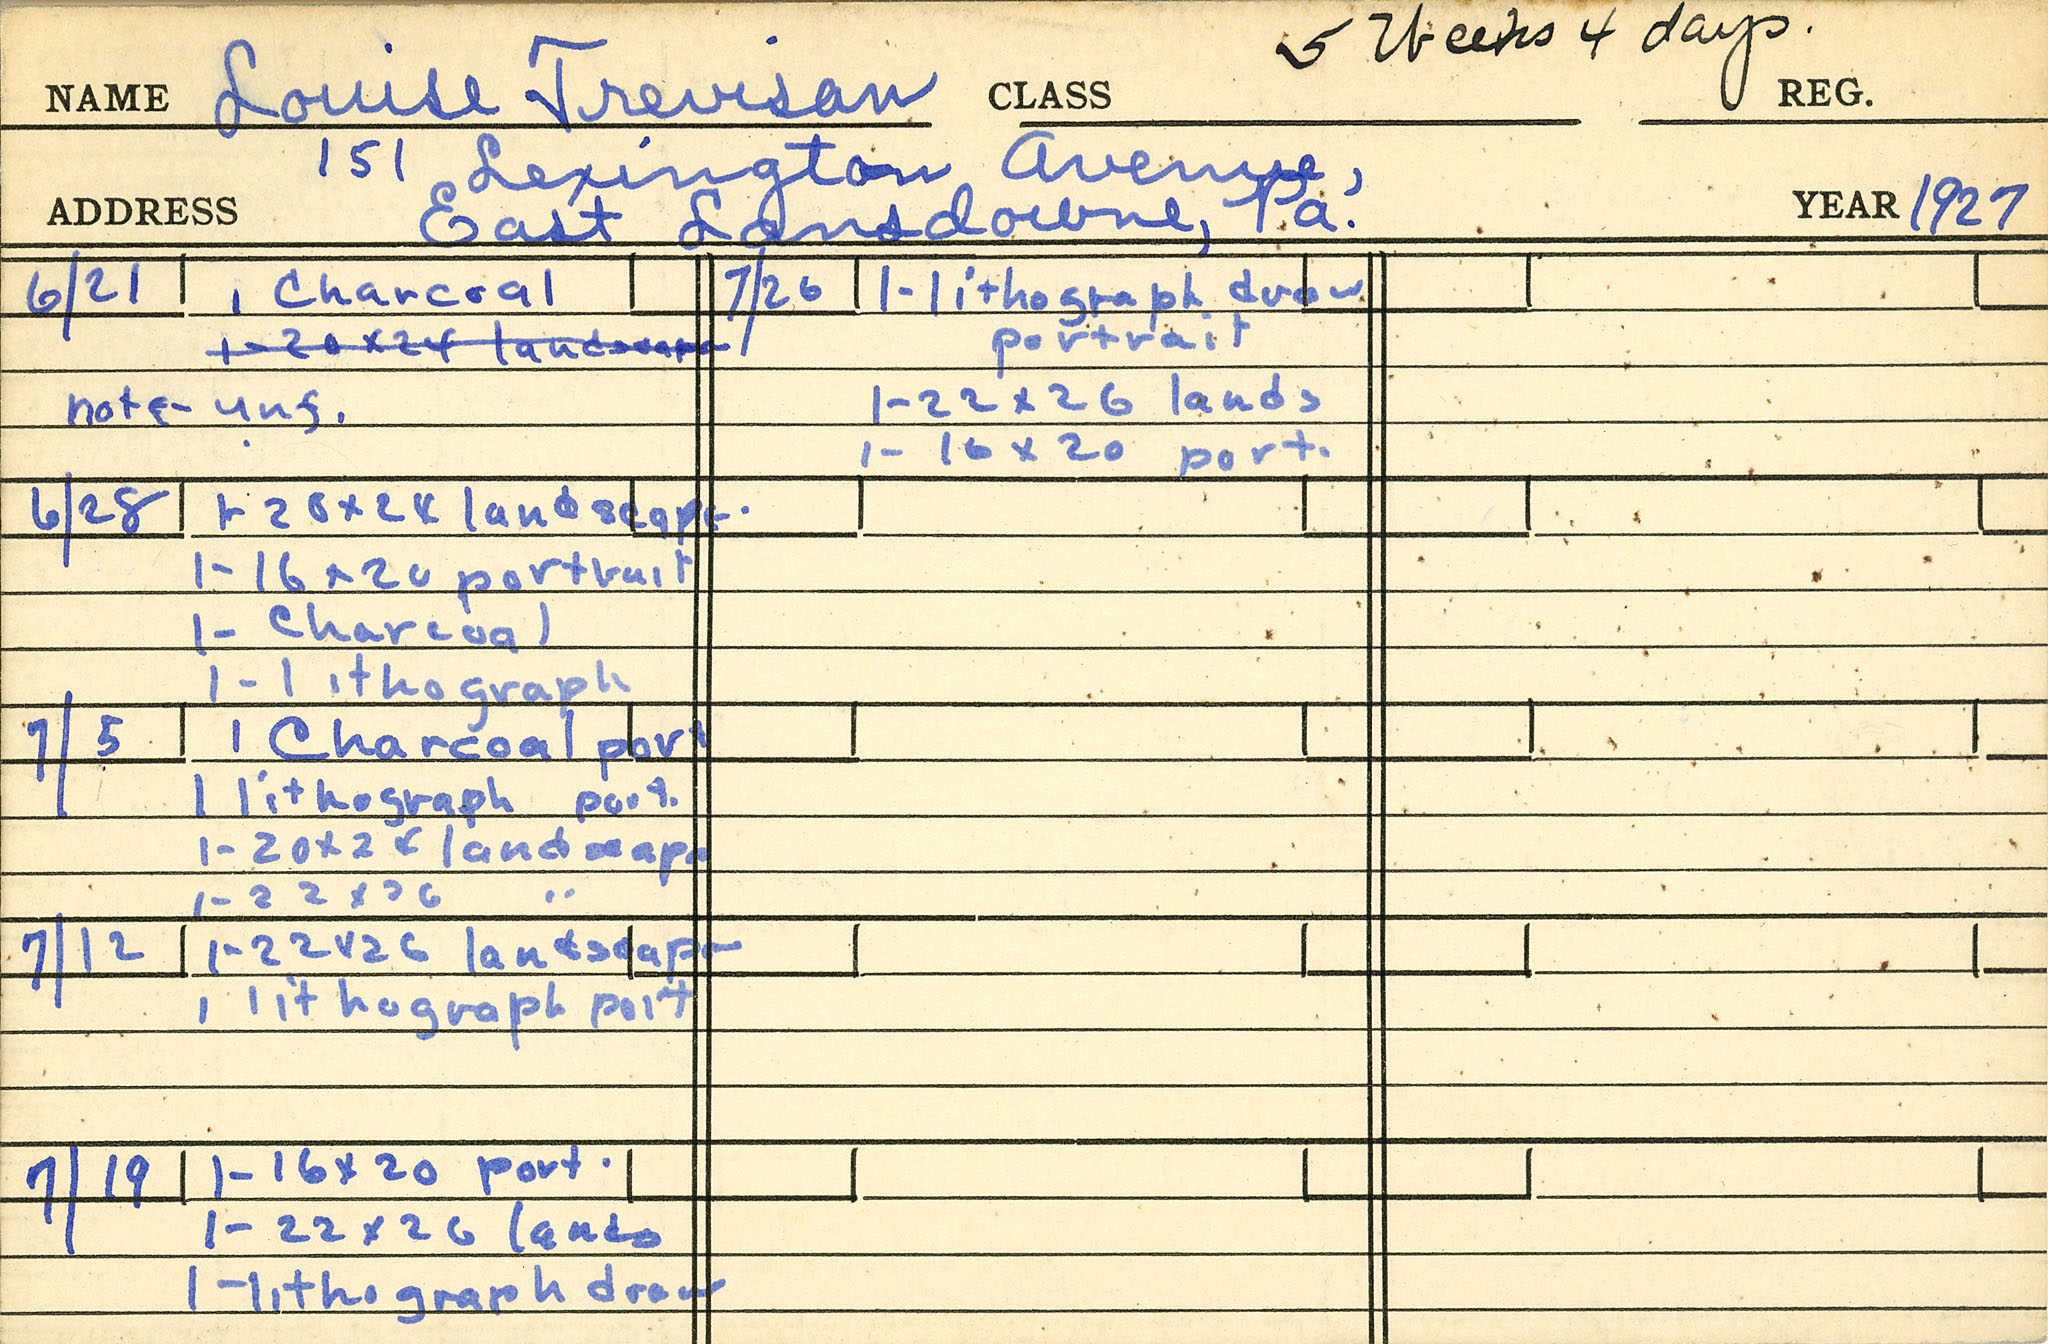 5 Weeks 4 days.
NAME Louise Trevisan CLASS REG.
151 Lexington Avenue,
ADDRESS East Lansdowne, Pa. YEAR 1927
6/21 1 Charcoal
1-20x24 landscape
note- unf.
6/28 1-20x24 landscape.
1-16x20 portrait
1- Charcoal
1-lithograph
7/5 1 Charcoal port
1 lithograph port.
1-20x24 landscape
1-22x26 "
7/12 1-22x26 landscape
1 lithograph port
7/19 1-16x20 port.
1-22x26 lands
1-lithograph draw
7/26 1-lithograph draw
portrait
1-22x26 lands
1-16x20 port.